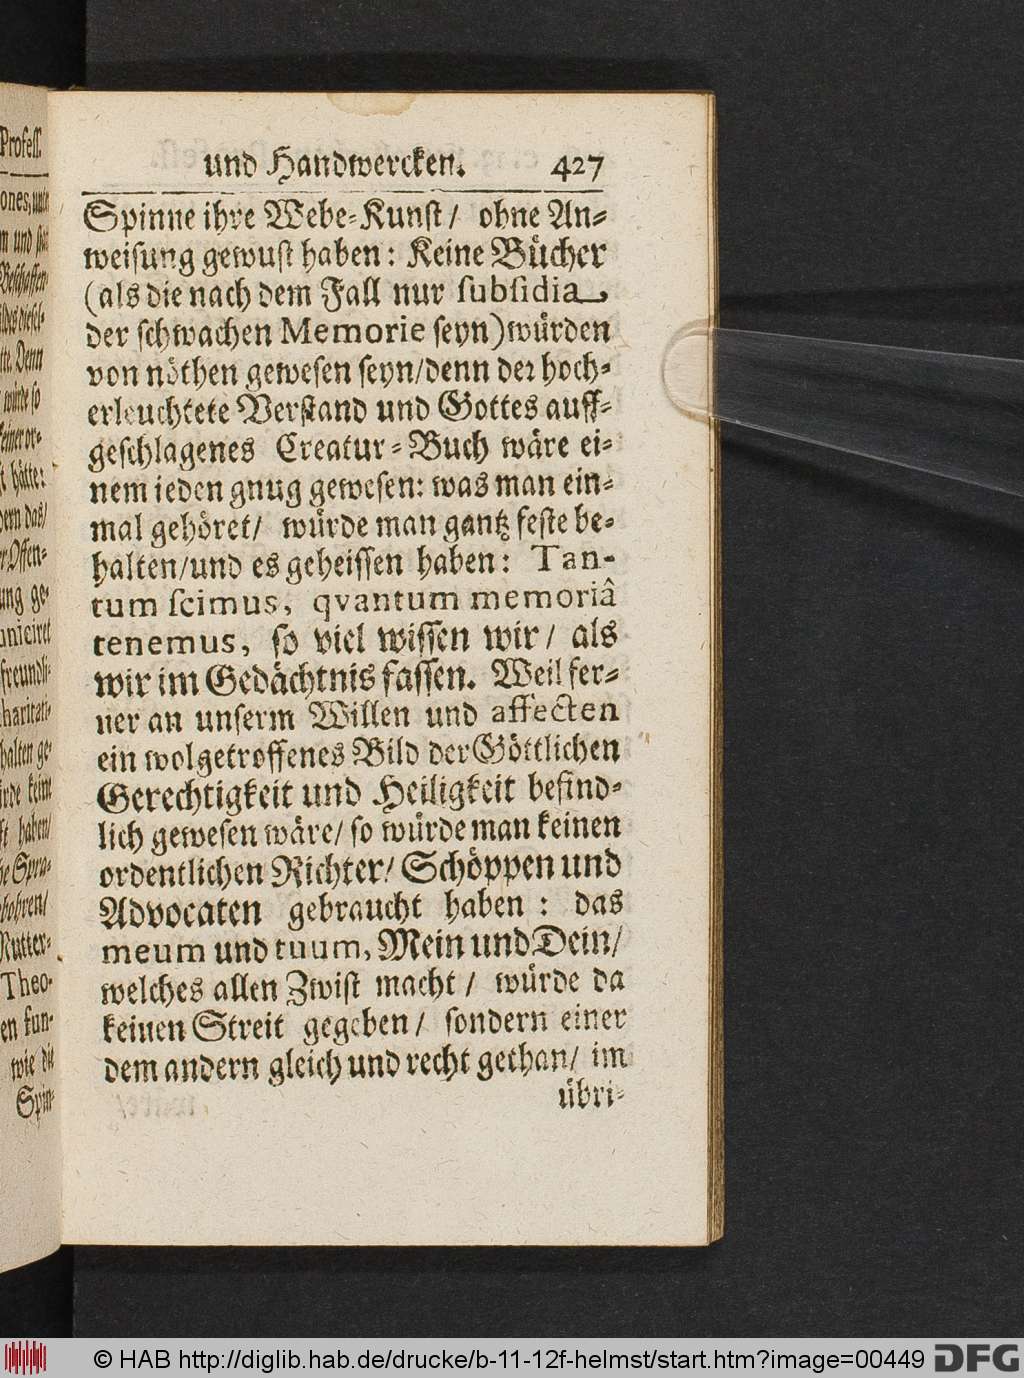 und Handwercken. 427
Spinne ihre Webe-Kunst/ ohne An-
weisung gewust haben: Keine Bücher
(als die nach dem Fall nur subsidia
der schwachen Memorie seyn) würden
von nöthen gewesen seyn/denn der hoch-
erleuchtete Verstand und Gottes auff-
geschlagenes Creatur-Buch wäre ei-
nem ieden gnug gewesen: was man ein-
mal gehöret/ würde man gantz feste be-
halten/und es geheissen haben: Tan-
tum scimus, qvantum memoriâ
tenemus, so viel wissen wir/ als
wir im Gedächtnis fassen. Weil fer-
ner an unserm Willen und affecten
ein wolgetroffenes Bild der Göttlichen
Gerechtigkeit und Heiligkeit befind-
lich gewesen wäre/ so würde man keinen
ordentlichen Richter/ Schöppen und
Advocaten gebraucht haben: das
meum und tuum, Mein und Dein/
welches allen Zwist macht/ würde da
keinen Streit gegeben/ sondern einer
dem andern gleich und recht gethan/ im
übri-
Profess.
ones, unte
Denn
würde so
keiner or-
hätte:
dern das/
Offen-
ung ge-
freundli-
charitati-
halten ge-
ürde keine
haben/
gebohren/
Mutter-
Theo-
en kun-
wie die
Spin-
© HAB http://diglib.hab.de/drucke/b-11-12f-helmst/start.htm?image=00449 DFG